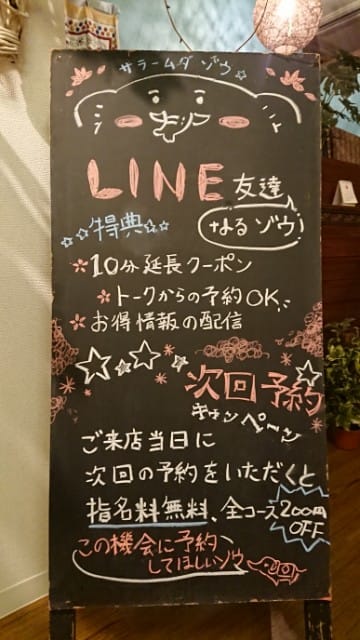 サラームダゾウ☆
LINE友達
なるゾウ
☆☆特典☆☆
*10分延長クーポン
*トークからの予約OK
*お得情報の配信
次回予約
キャンペーン
ご来店当日に
次回の予約をいただくと
指名料無料、全コース200円
OFF
この機会に予約
してほしいゾウ